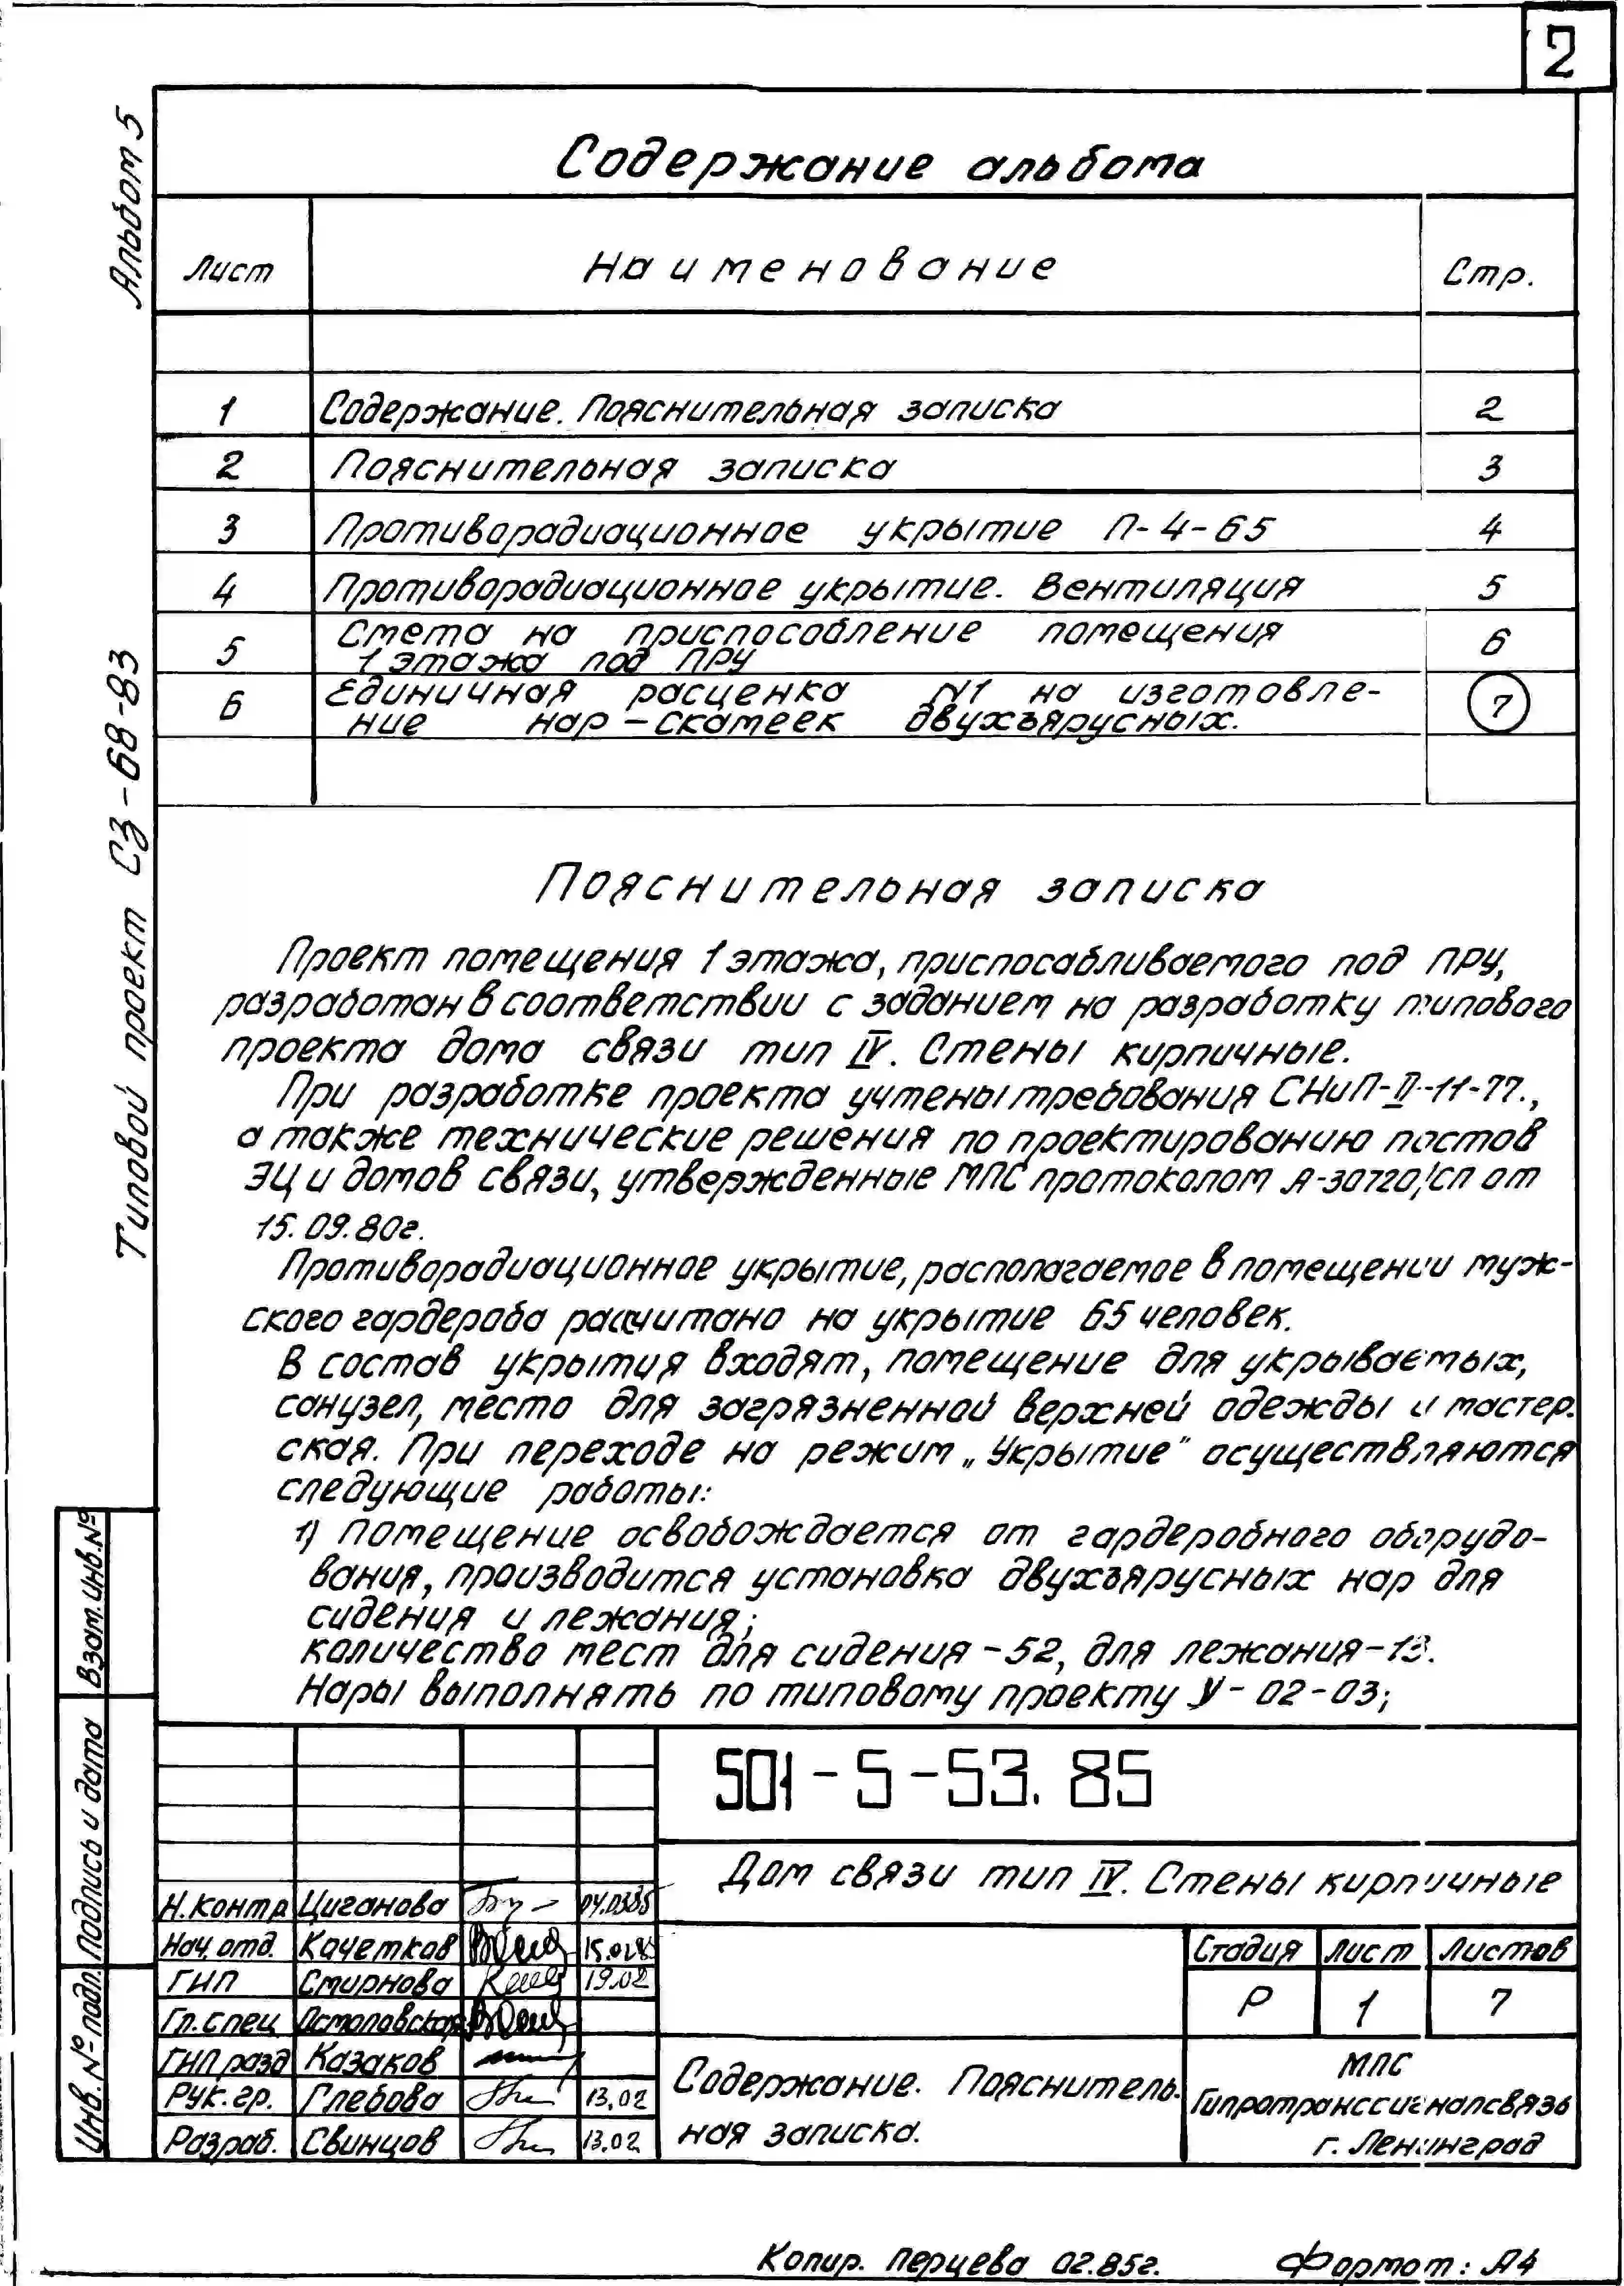 2
Альбом 5
Типовой проект СЗ-68-83
Содержание альбома
Лист Наименование Стр.
1 Содержание. Пояснительная записка 2
2 Пояснительная записка 3
3 Противорадиационное укрытие П-4-65 4
4 Противорадиационное укрытие. Вентиляция 5
5 Смета на приспособление помещения 6
1 этажа под ПРУ
6 Единичная расценка N1 на изготовле- 7
ние нар-скамеек двухъярусных.
Пояснительная записка
Проект помещения 1 этажа, приспосабливаемого под ПРУ,
разработан в соответствии с заданием на разработку типового
проекта дома связи тип IV. Стены кирпичные.
При разработке проекта учтены требования СНиП-II-11-77.,
а также технические решения по проектированию постов
ЭЦ и домов связи, утвержденные МПС протоколом А-30720/СП от
15.09.80г.
Противорадиационное укрытие, располагаемое в помещении муж-
ского гардероба рассчитано на укрытие 65 человек.
В состав укрытия входят, помещение для укрываемых,
санузел, место для загрязненной верхней одежды и мастер.
ская. При переходе на режим „Укрытие" осуществляются
следующие работы:
1) Помещение освобождается от гардеробного оборудо-
вания, производится установка двухъярусных нар для
сидения и лежания;
количество мест для сидения-52, для лежания-13.
Нары выполнять по типовому проекту У-02-03;
Взам. инв. №
Подпись и дата
Инв. № подл.
501-5-53.85
Дом связи тип IV. Стены кирпичные
Н.контр Циганова 04.0385
Нач. отд. Качетков 15.02.85
ГИП Смирнова 19.02
Гл. спец Остаповская
ГИП разд Казаков
Рук. гр. Глебова 13.02
Разраб. Свинцов 13.02
Стадия Лист Листов
Р 1 7
Содержание. Пояснитель-
ная записка.
МПС
Гипротранссигналсвязь
г. Ленинград
Копир. Перцева 02.85г. Формат: А4